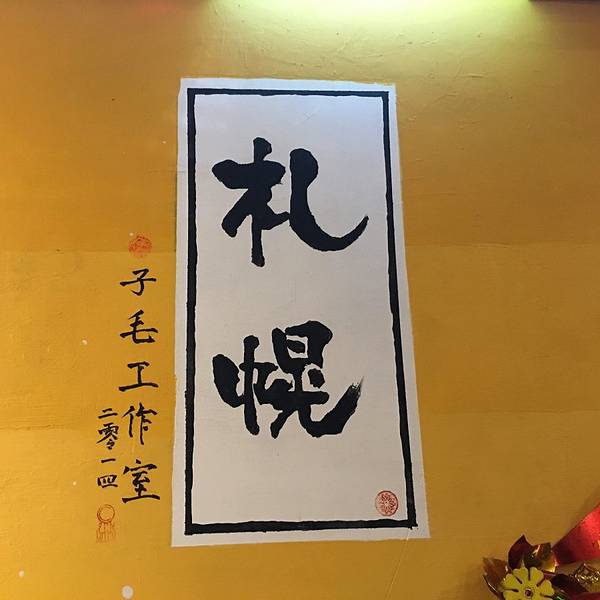 札幌
子毛工作室
二零一四